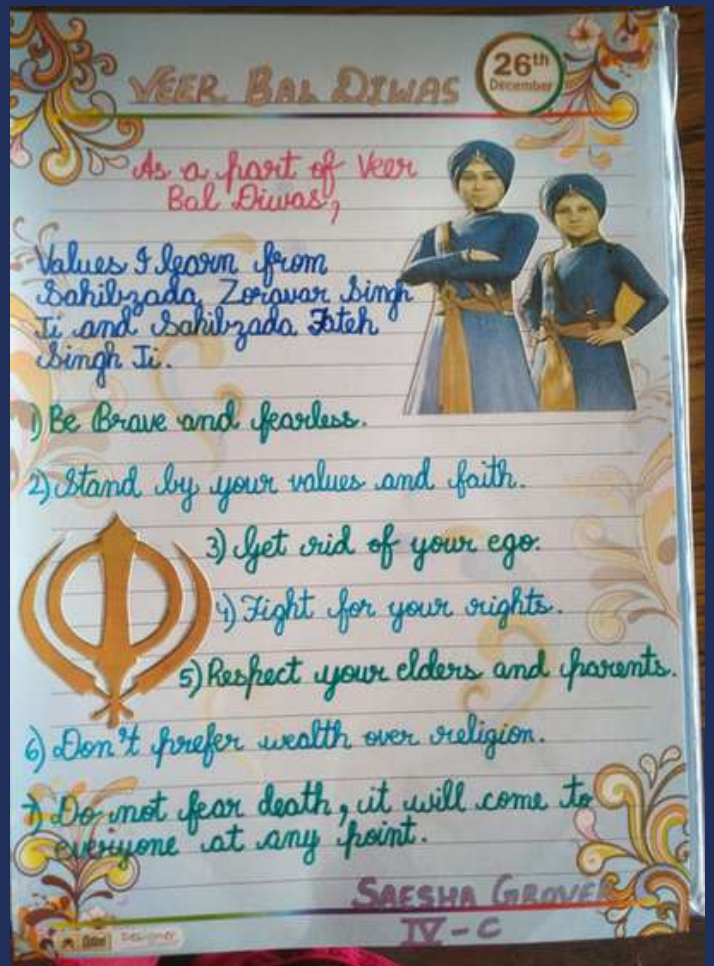 VEER BAL DIWAS
26th
December
As a part of Veer
Bal Diwas,
Values I learn from
Sahibzada Zoravar Singh
Ji and Sahibzada Fateh
Singh Ji.
1) Be Brave and fearless.
2) Stand by your values and faith.
3) Get rid of your ego.
4) Fight for your rights.
5) Respect your elders and parents.
6) Don't prefer wealth over religion.
7) Do not fear death, it will come to
everyone at any point.
SAESHA GROVER
IV-C
Designer